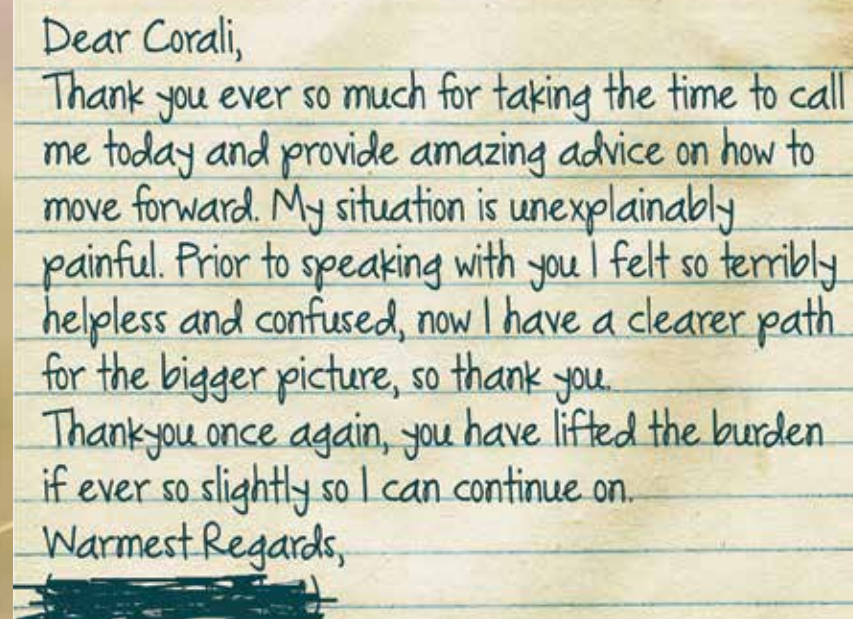 Dear Corali,
Thank you ever so much for taking the time to call
me today and provide amazing advice on how to
move forward. My situation is unexplainably
painful. Prior to speaking with you I felt so terribly
helpless and confused, now I have a clearer path
for the bigger picture, so thank you.
Thankyou once again, you have lifted the burden
if ever so slightly so I can continue on.
Warmest Regards,